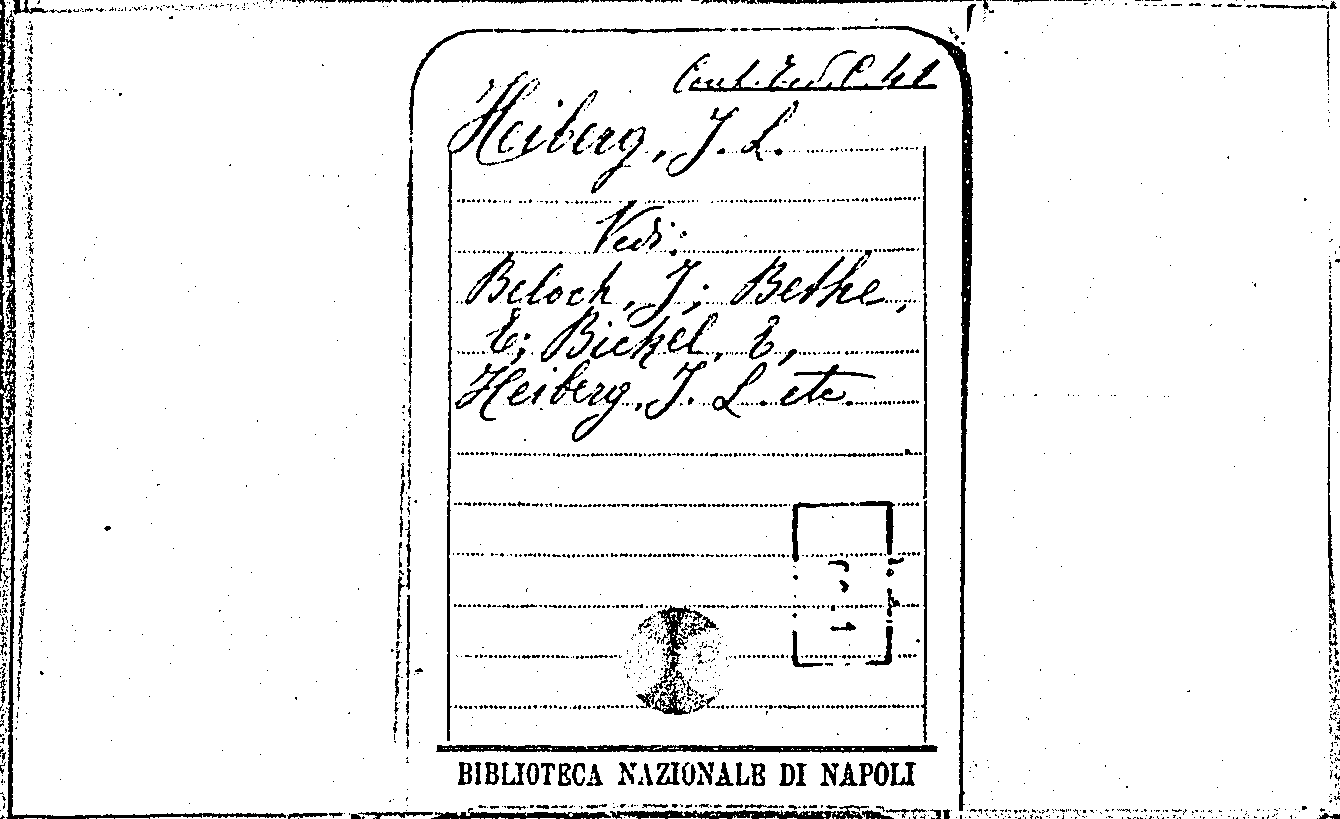 Heiberg, J. L.
Vedi:
Beloch, J; Bethe,
E; Bickel, E,
Heiberg, J. L. etc.
BIBLIOTECA NAZIONALE DI NAPOLI